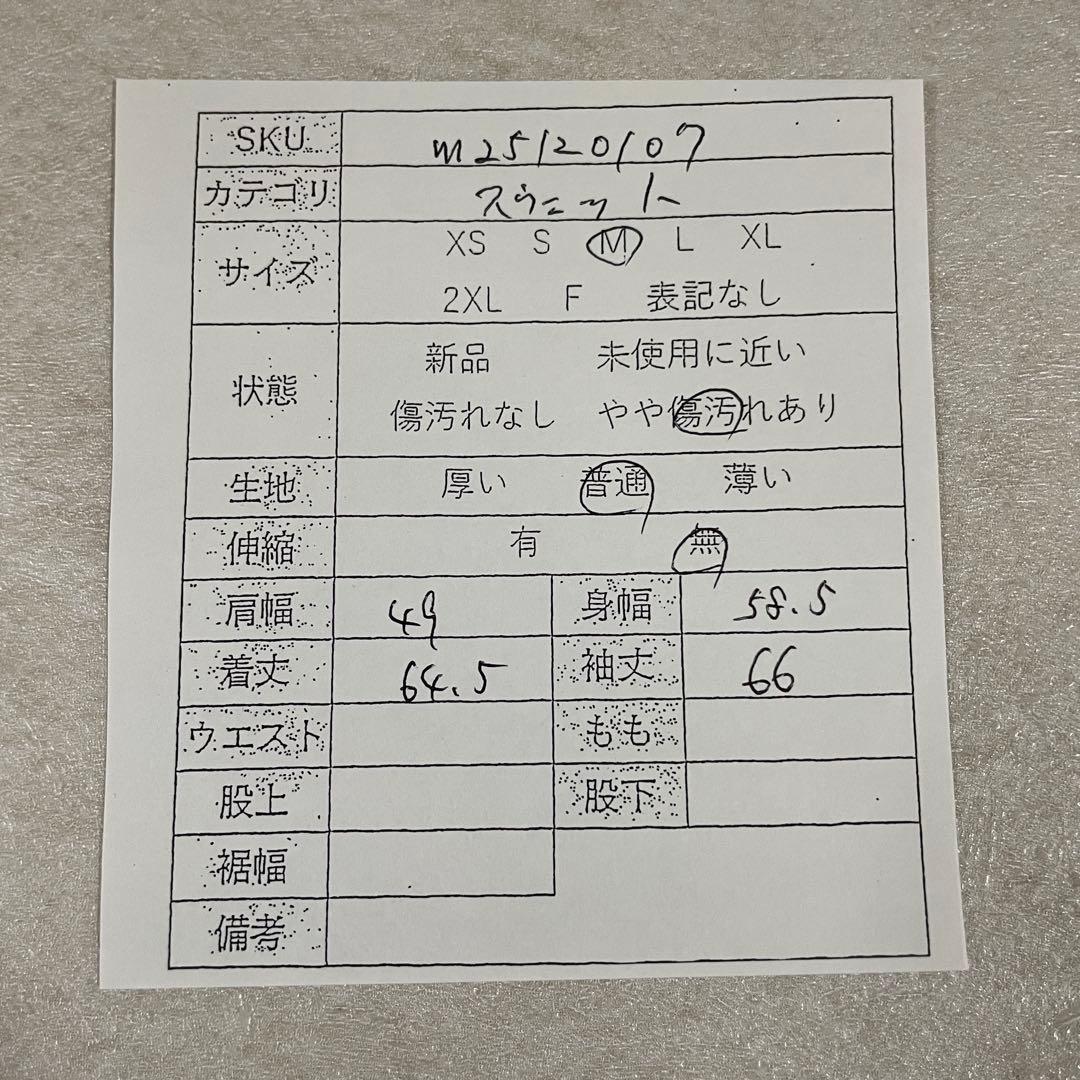 SKU m25120107
カテゴリ スウェット
サイズ XS S M L XL
2XL F 表記なし
状態 新品 未使用に近い
傷汚れなし やや傷汚れあり
生地 厚い 普通 薄い
伸縮 有 無
肩幅 49 身幅 58.5
着丈 64.5 袖丈 66
ウエスト もも
股上 股下
裾幅
備考